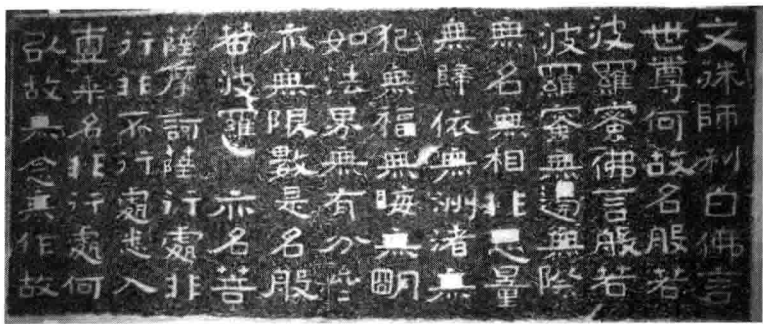 文殊師利白佛言
世尊何故名般若
波羅蜜佛言般若
波羅蜜無邊無際
無名無相非思量
無歸依無洲渚無
犯無福無晦無明
如法界無有分齊
亦無限數是名般
若波羅亦名菩
薩摩訶薩行處非
行非不行處悉入
壹乘名非行處何
以故無念無作故